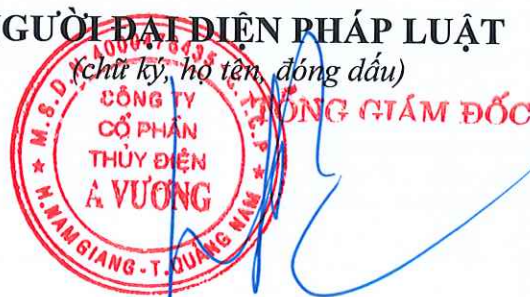 GƯỜI ĐẠI DIỆN PHÁP LUẬT
(chữ ký, họ tên, đóng dấu)
TỔNG GIÁM ĐỐC
CÔNG TY
CỔ PHẦN
THỦY ĐIỆN
A VƯƠNG
H.NAM GIANG - T.QUẢNG NAM